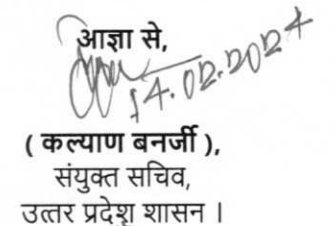 आज्ञा से,
14.02.2024
( कल्याण बनर्जी ),
संयुक्त सचिव,
उत्तर प्रदेश शासन ।